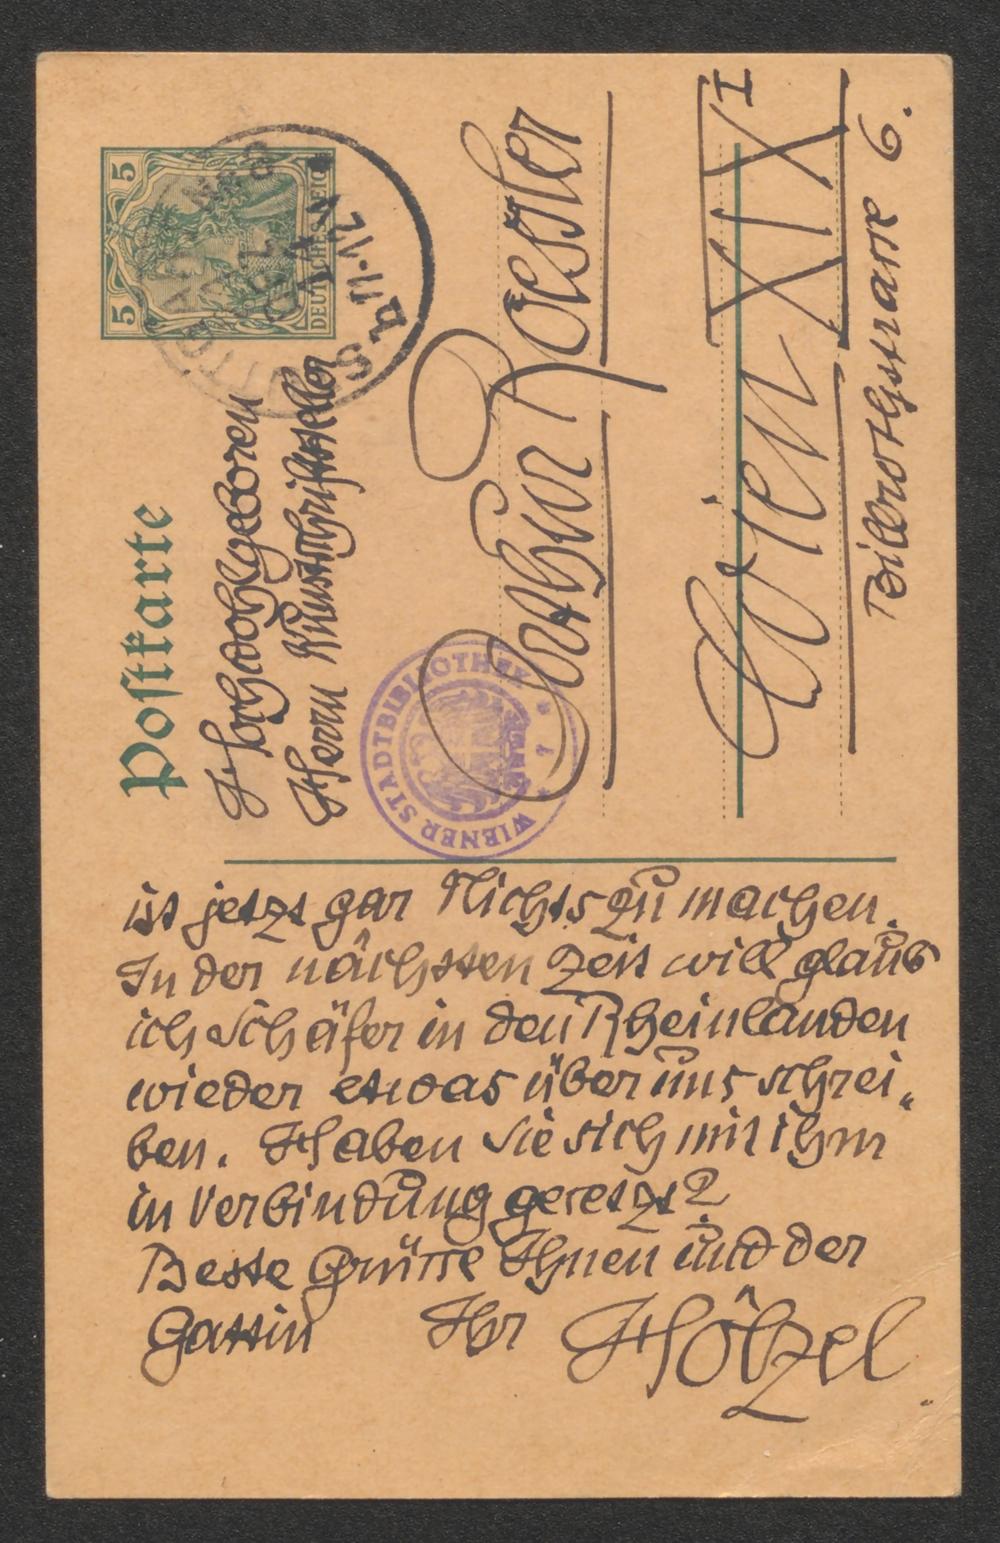 Postkarte
5 5
DEUTSCHES REICH
STUTTGART
11-12
Hochwohlgeboren
Herrn Kunstschriftsteller
Arthur Roessler
Wien XIX I
Billrothstrasse 6.
WIENER STADTBIBLIOTHEK
ist jetzt gar Nichts zu machen.
In der nächsten Zeit will glaub
ich Schäfer in den Rheinlanden
wieder etwas über uns schrei„
ben. Haben Sie sich mit ihm
in Verbindung gesetzt?
Beste Grüsse Ihnen und der
Gattin Ihr Hölzel.